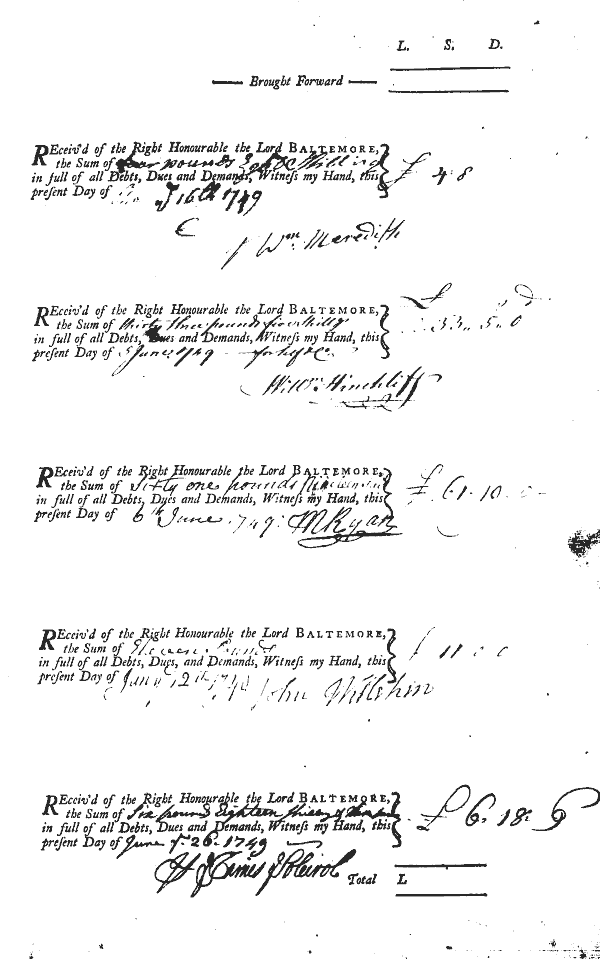 L. S. D.
Brought Forward
REceiv'd of the Right Honourable the Lord BALTEMORE,
the Sum of four pounds Eight Shillings
in full of all Debts, Dues and Demands, Witneſs my Hand, this
preſent Day of 16th 1749
£ 4 8
Wm. Meredith
REceiv'd of the Right Honourable the Lord BALTEMORE,
the Sum of thirty three pounds five shills
in full of all Debts, Dues and Demands, Witneſs my Hand, this
preſent Day of June 1749
£ 33 . 5 . 0
Willm. Hinchliff
REceiv'd of the Right Honourable the Lord BALTEMORE,
the Sum of Sixty one pounds
in full of all Debts, Dues and Demands, Witneſs my Hand, this
preſent Day of 6th June 1749. M Ryan
£ 61. 10
REceiv'd of the Right Honourable the Lord BALTEMORE,
the Sum of Eleven Pounds
in full of all Debts, Dues, and Demands, Witneſs my Hand, this
preſent Day of June 12th John
11 0 0
REceiv'd of the Right Honourable the Lord BALTEMORE,
the Sum of Six pound Eighteen
in full of all Debts, Dues and Demands, Witneſs my Hand, this
preſent Day of June ye 26. 1749
£ 6. 18.
James
Total L